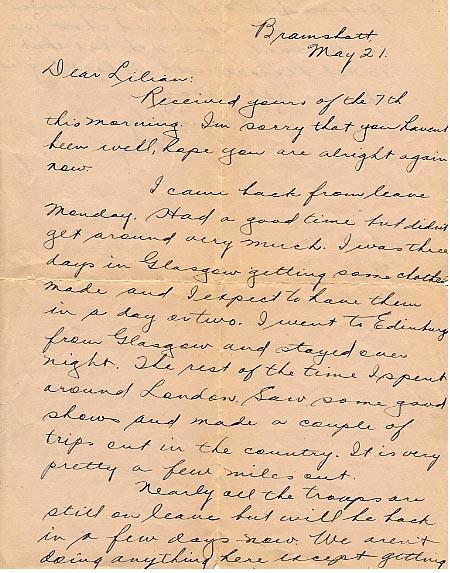 Bramshott,
May 21.
Dear Lilian:
Received yours of the 7th
this morning. Im sorry that you haven't
been well, hope you are alright again
now.
I came back from leave
Monday. Had a good time but didn't
get around very much. I was three
days in Glasgow getting some clothes
made and I expect to have them
in a day or two. I went to Edinburg
from Glasgow and stayed over
night. The rest of the time I spent
around London. Saw some good
shows and made a couple of
trips out in the country. It is very
pretty a few miles out.
Nearly all the troops are
still on leave but will be back
in a few days now. We aren't
doing anything here except getting